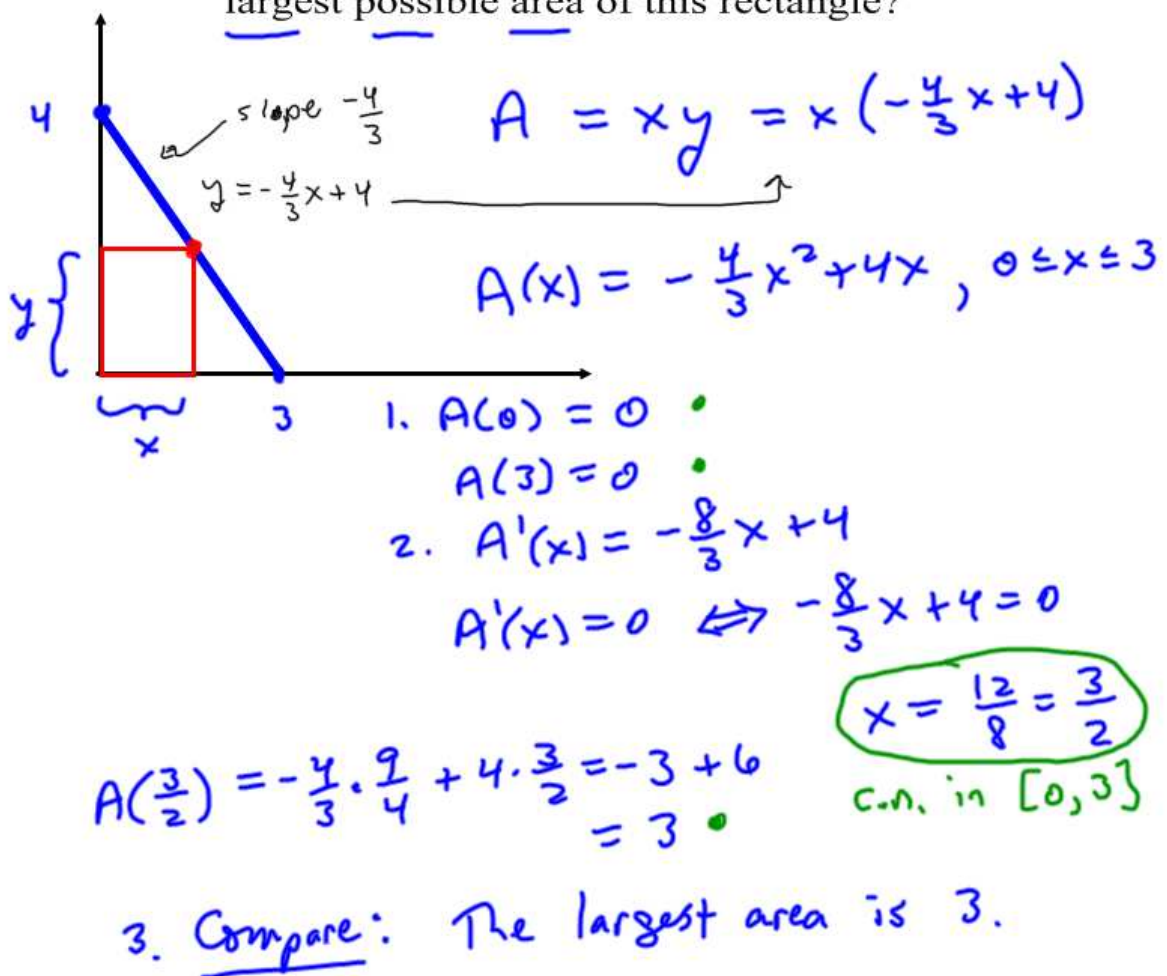 largest possible area of this rectangle?
4
slope -4/3
A = xy = x(-4/3 x+4)
y = -4/3 x+4
y
A(x) = -4/3 x²+4x, 0≤x≤3
x
3
1. A(0) = 0
A(3) = 0
2. A'(x) = -8/3 x +4
A'(x) = 0 ⟺ -8/3 x +4 = 0
x = 12/8 = 3/2
c.n. in [0,3]
A(3/2) = -4/3 · 9/4 + 4 · 3/2 = -3 + 6
= 3
3. Compare: The largest area is 3.